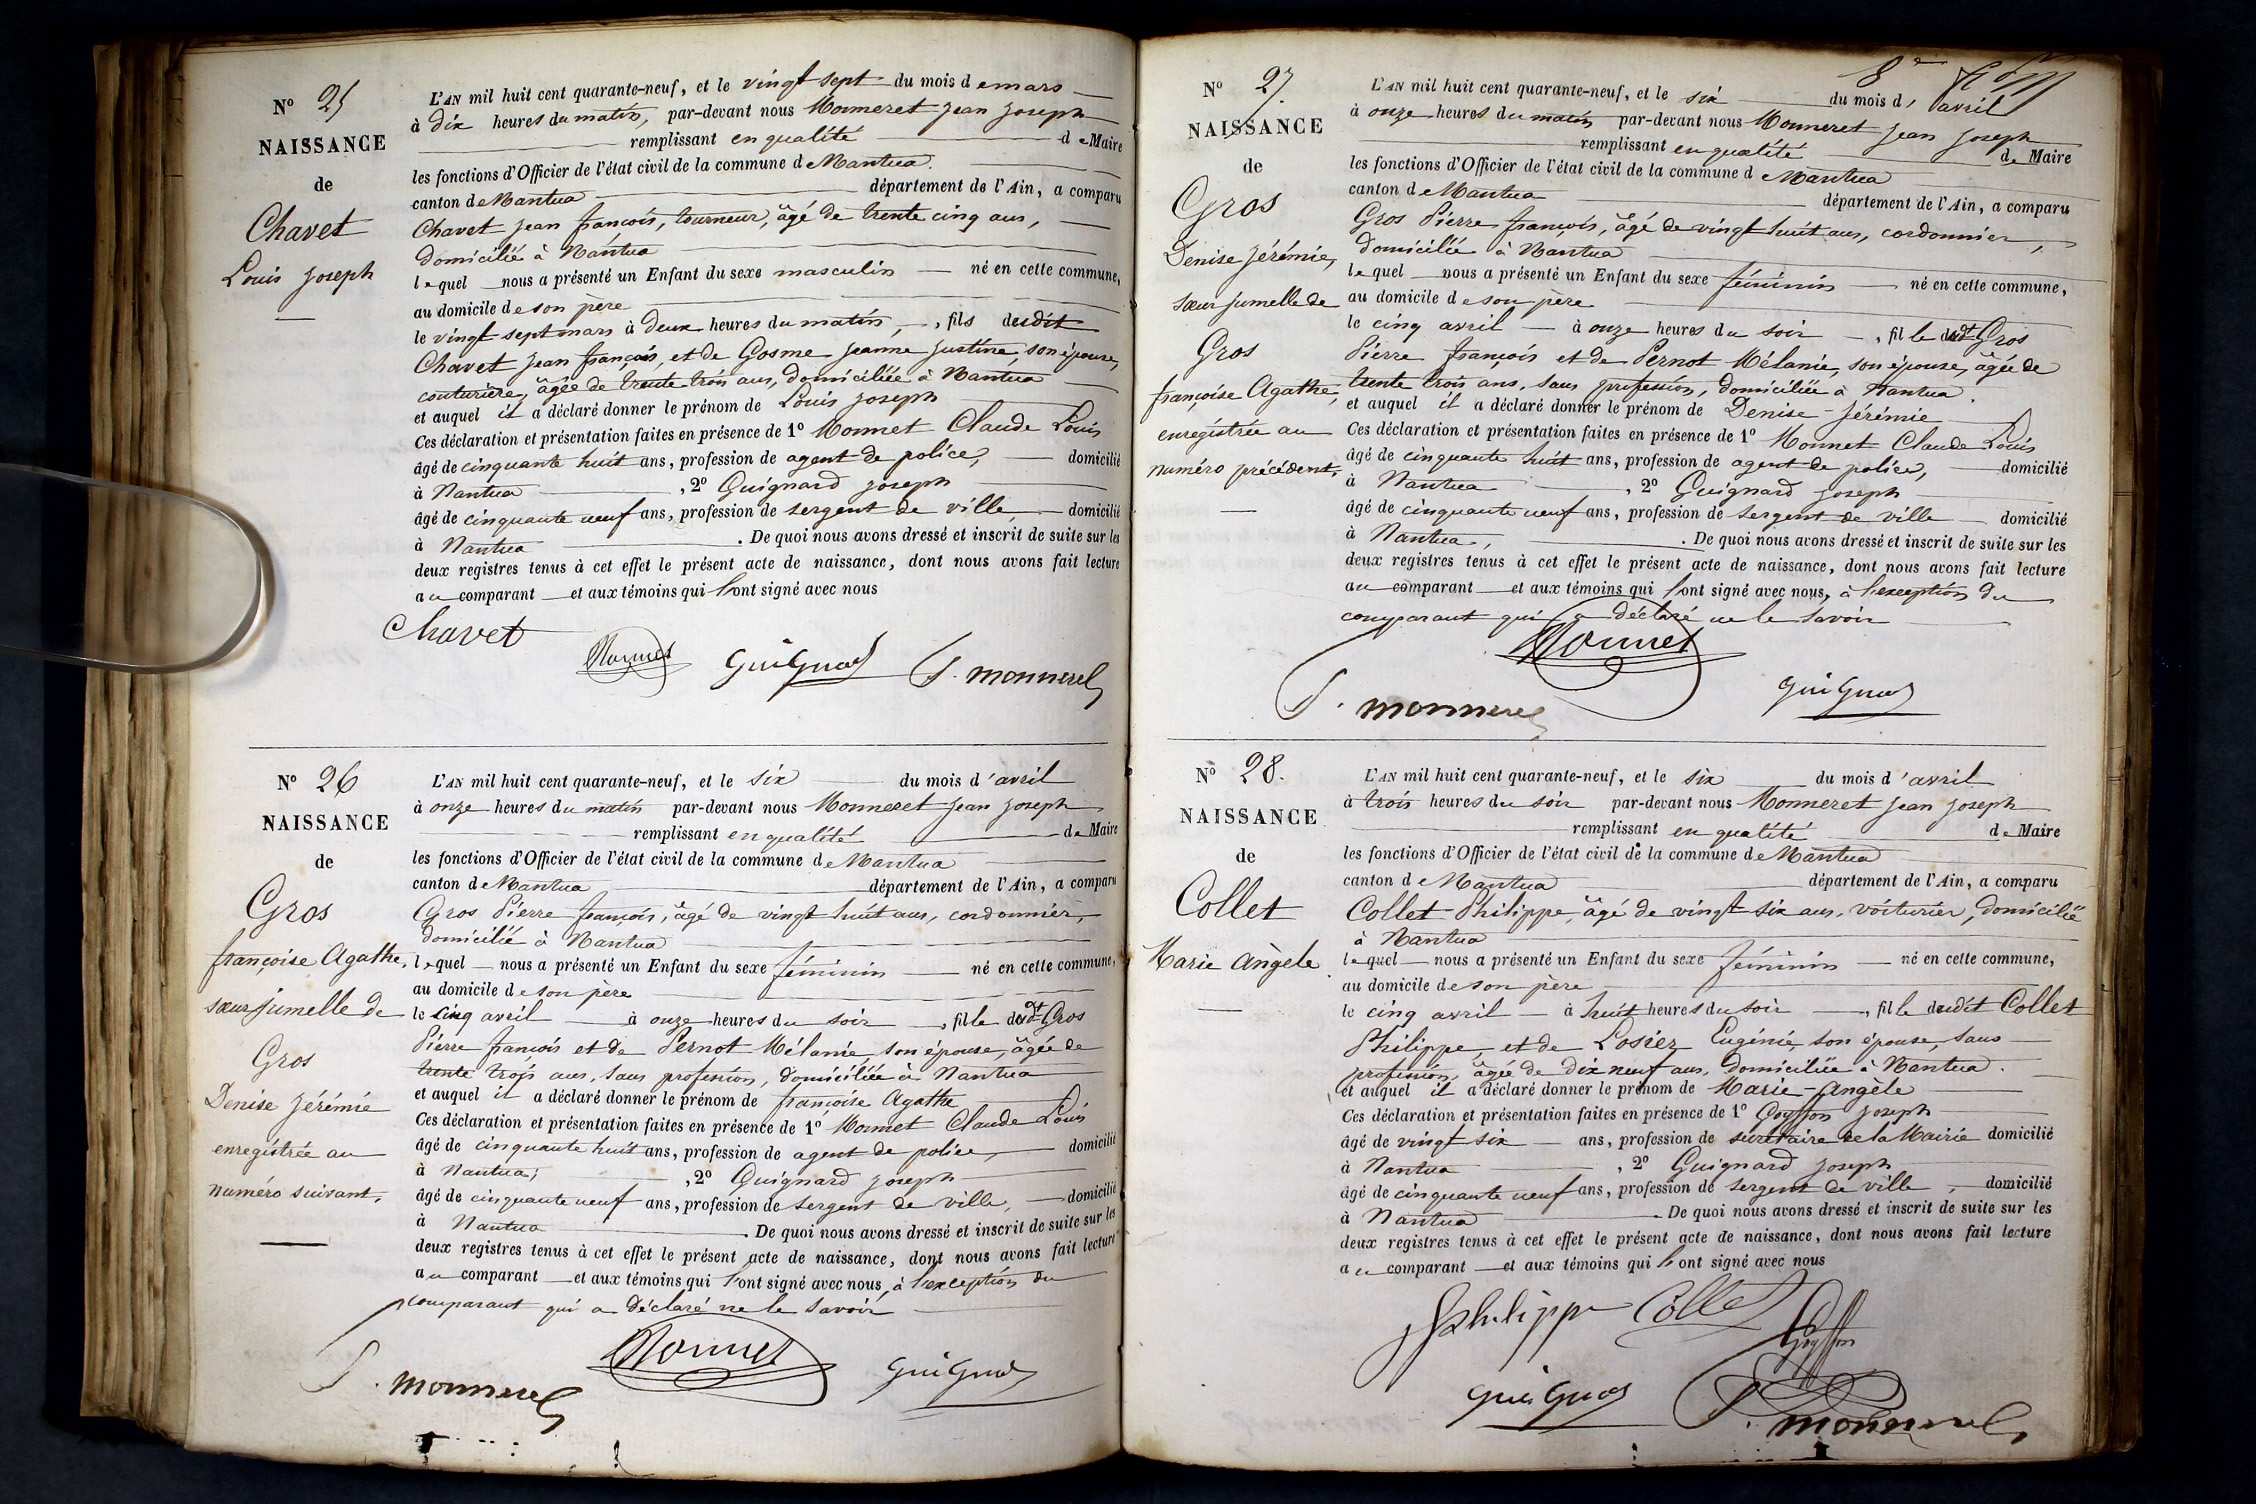 N° 25
NAISSANCE
de
Chavet
Louis Joseph
L'AN mil huit cent quarante-neuf, et le vingt sept du mois de mars
à dix heures du matin, par-devant nous Monneret Jean Joseph
remplissant en qualité de Maire
les fonctions d'Officier de l'état civil de la commune de Nantua.
canton de Nantua département de l'Ain, a comparu
Chavet Jean françois, tourneur, âgé de trente cinq ans,
domicilié à Nantua
lequel nous a présenté un Enfant du sexe masculin né en cette commune,
au domicile de son père
le vingt sept mars à deux heures du matin, fils dudit
Chavet Jean françois, et de Gosme Jeanne Justine, son épouse,
couturière, âgée de trente trois ans, domiciliée à Nantua
et auquel il a déclaré donner le prénom de Louis Joseph
Ces déclaration et présentation faites en présence de 1° Monnet Claude Louis
âgé de cinquante huit ans, profession de agent de police, domicilié
à Nantua , 2° Guignard Joseph
âgé de cinquante neuf ans, profession de sergent de ville, domicilié
à Nantua . De quoi nous avons dressé et inscrit de suite sur les
deux registres tenus à cet effet le présent acte de naissance, dont nous avons fait lecture
au comparant et aux témoins qui l'ont signé avec nous
Chavet
Monnet Guignard J. monneret
N° 26
NAISSANCE
de
Gros
françoise Agathe,
sœur jumelle de
Gros
Denise Jérémie
enregistrée au
numéro suivant.
L'AN mil huit cent quarante-neuf, et le six du mois d'avril
à onze heures du matin par-devant nous Monneret Jean Joseph
remplissant en qualité de Maire
les fonctions d'Officier de l'état civil de la commune de Nantua
canton de Nantua département de l'Ain, a comparu
Gros Pierre françois, âgé de vingt huit ans, cordonnier,
domicilié à Nantua
lequel nous a présenté un Enfant du sexe féminin né en cette commune,
au domicile de son père
le cinq avril à onze heures du soir , fille dudt Gros
Pierre françois et de Pernot Mélanie, son épouse, âgée de
trente trois ans, sans profession, domiciliée à Nantua
et auquel il a déclaré donner le prénom de françoise Agathe
Ces déclaration et présentation faites en présence de 1° Monnet Claude Louis
âgé de cinquante huit ans, profession de agent de police, domicilié
à Nantua, , 2° Guignard Joseph
âgé de cinquante neuf ans, profession de sergent de ville, domicilié
à Nantua . De quoi nous avons dressé et inscrit de suite sur les
deux registres tenus à cet effet le présent acte de naissance, dont nous avons fait lecture
au comparant et aux témoins qui l'ont signé avec nous, à l'exception du
comparant qui a déclaré ne le savoir
Monnet
J. monneret Guignard
8e
N° 27.
NAISSANCE
de
Gros
Denise Jérémie,
sœur jumelle de
Gros
françoise Agathe,
enregistrée au
numéro précédent.
L'AN mil huit cent quarante-neuf, et le six du mois d'avril
à onze heures du matin par-devant nous Monneret Jean Joseph
remplissant en qualité de Maire
les fonctions d'Officier de l'état civil de la commune de Nantua
canton de Nantua département de l'Ain, a comparu
Gros Pierre françois, âgé de vingt huit ans, cordonnier,
domicilié à Nantua
lequel nous a présenté un Enfant du sexe féminin né en cette commune,
au domicile de son père
le cinq avril à onze heures du soir , fille dudt Gros
Pierre françois et de Pernot Mélanie, son épouse, âgée de
trente trois ans, sans profession, domiciliée à Nantua.
et auquel il a déclaré donner le prénom de Denise-Jérémie
Ces déclaration et présentation faites en présence de 1° Monnet Claude Louis
âgé de cinquante huit ans, profession de agent de police, domicilié
à Nantua , 2° Guignard Joseph
âgé de cinquante neuf ans, profession de sergent de ville domicilié
à Nantua, . De quoi nous avons dressé et inscrit de suite sur les
deux registres tenus à cet effet le présent acte de naissance, dont nous avons fait lecture
au comparant et aux témoins qui l'ont signé avec nous, à l'exception du
comparant qui a déclaré ne le savoir
Monnet
J. monneret Guignard
N° 28.
NAISSANCE
de
Collet
Marie Angèle
L'AN mil huit cent quarante-neuf, et le six du mois d'avril
à trois heures du soir par-devant nous Monneret Jean Joseph
remplissant en qualité de Maire
les fonctions d'Officier de l'état civil de la commune de Nantua
canton de Nantua département de l'Ain, a comparu
Collet Philippe, âgé de vingt six ans, voiturier, domicilié
à Nantua
lequel nous a présenté un Enfant du sexe féminin né en cette commune,
au domicile de son père
le cinq avril à huit heures du soir , fille dudit Collet
Philippe, et de Losier Eugénie, son épouse, sans
profession, âgée de dix neuf ans, domiciliée à Nantua.
et auquel il a déclaré donner le prénom de Marie-Angèle
Ces déclaration et présentation faites en présence de 1° Goyffon Joseph
âgé de vingt six ans, profession de secrétaire de la Mairie domicilié
à Nantua , 2° Guignard Joseph
âgé de cinquante neuf ans, profession de sergent de ville, domicilié
à Nantua . De quoi nous avons dressé et inscrit de suite sur les
deux registres tenus à cet effet le présent acte de naissance, dont nous avons fait lecture
au comparant et aux témoins qui l'ont signé avec nous
Philippe Collet
Goyffon
Guignard J. monneret